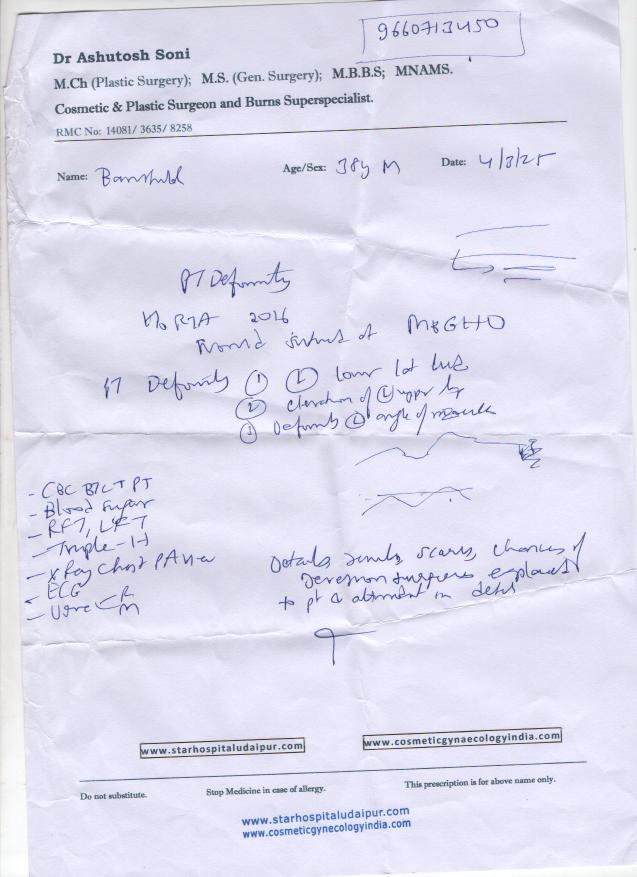 9660713450
Dr Ashutosh Soni
M.Ch (Plastic Surgery); M.S. (Gen. Surgery); M.B.B.S; MNAMS.
Cosmetic & Plastic Surgeon and Burns Superspecialist.
RMC No: 14081/ 3635/ 8258
Name: Age/Sex: 38y M Date: 4/3/25
PT Deformity
H/o RTA 2016
of
PT Deformity ① Ⓛ lower
② elevation of Ⓛ upper
③ Deformity Ⓛ angle of
- CBC BT CT PT
- Blood sugar
- RFT, LFT
- Triple-H
- X Ray Chest PA View
- ECG
- Urine R
M
Details, scars, chances of
explained
to pt & in detail
www.starhospitaludaipur.com
www.cosmeticgynaecologyindia.com
Do not substitute. Stop Medicine in case of allergy. This prescription is for above name only.
www.starhospitaludaipur.com
www.cosmeticgynecologyindia.com